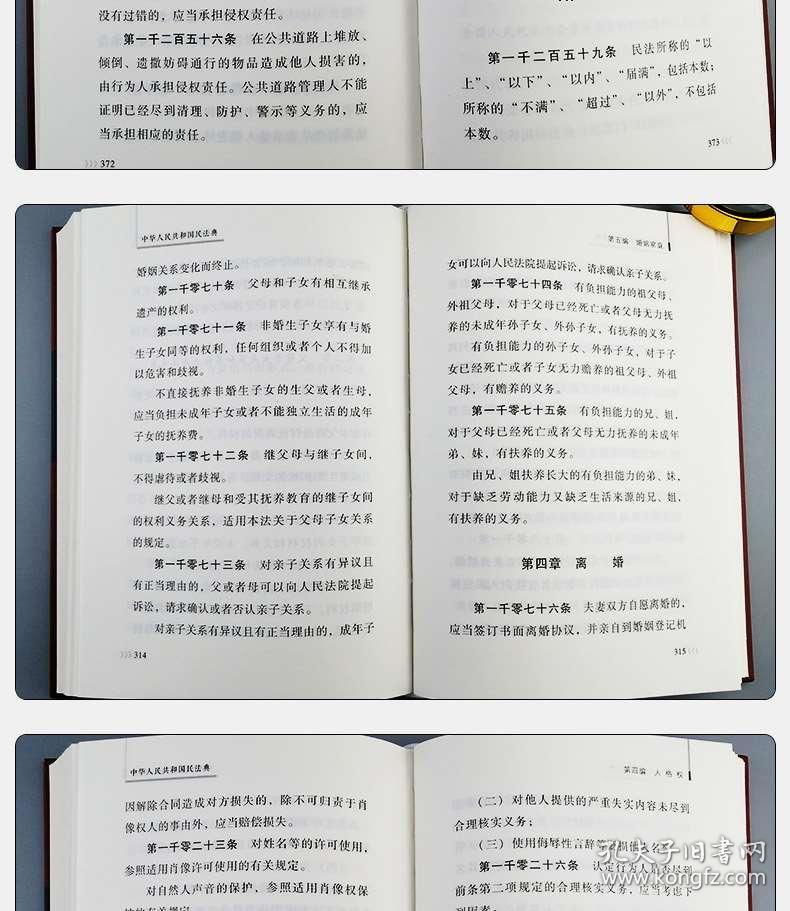 没有过错的，应当承担侵权责任。
第一千二百五十六条 在公共道路上堆放、
倾倒、遗撒妨碍通行的物品造成他人损害的，
由行为人承担侵权责任。公共道路管理人不能
证明已经尽到清理、防护、警示等义务的，应
当承担相应的责任。
372
第一千二百五十九条 民法所称的“以
上”、“以下”、“以内”、“届满”，包括本数；
所称的“不满”、“超过”、“以外”，不包括
本数。
373
中华人民共和国民法典
婚姻关系变化而终止。
第一千零七十条 父母和子女有相互继承
遗产的权利。
第一千零七十一条 非婚生子女享有与婚
生子女同等的权利，任何组织或者个人不得加
以危害和歧视。
不直接抚养非婚生子女的生父或者生母，
应当负担未成年子女或者不能独立生活的成年
子女的抚养费。
第一千零七十二条 继父母与继子女间，
不得虐待或者歧视。
继父或者继母和受其抚养教育的继子女间
的权利义务关系，适用本法关于父母子女关系
的规定。
第一千零七十三条 对亲子关系有异议且
有正当理由的，父或者母可以向人民法院提起
诉讼，请求确认或者否认亲子关系。
对亲子关系有异议且有正当理由的，成年子
314
第五编 婚姻家庭
女可以向人民法院提起诉讼，请求确认亲子关系。
第一千零七十四条 有负担能力的祖父母、
外祖父母，对于父母已经死亡或者父母无力抚
养的未成年孙子女、外孙子女，有抚养的义务。
有负担能力的孙子女、外孙子女，对于子
女已经死亡或者子女无力赡养的祖父母、外祖
父母，有赡养的义务。
第一千零七十五条 有负担能力的兄、姐，
对于父母已经死亡或者父母无力抚养的未成年
弟、妹，有扶养的义务。
由兄、姐扶养长大的有负担能力的弟、妹，
对于缺乏劳动能力又缺乏生活来源的兄、姐，
有扶养的义务。
第四章 离 婚
第一千零七十六条 夫妻双方自愿离婚的，
应当签订书面离婚协议，并亲自到婚姻登记机
315
中华人民共和国民法典
因解除合同造成对方损失的，除不可归责于肖
像权人的事由外，应当赔偿损失。
第一千零二十三条 对姓名等的许可使用，
参照适用肖像许可使用的有关规定。
对自然人声音的保护，参照适用肖像权保
护的有关规定。
第四编 人格权
（二）对他人提供的严重失实内容未尽到
合理核实义务；
（三）使用侮辱性言辞等
第一千零二十六条 认定行为人是否尽到
前条第二项规定的合理核实义务，应当考虑下
列因素：
孔夫子旧书网
www.kongfz.com